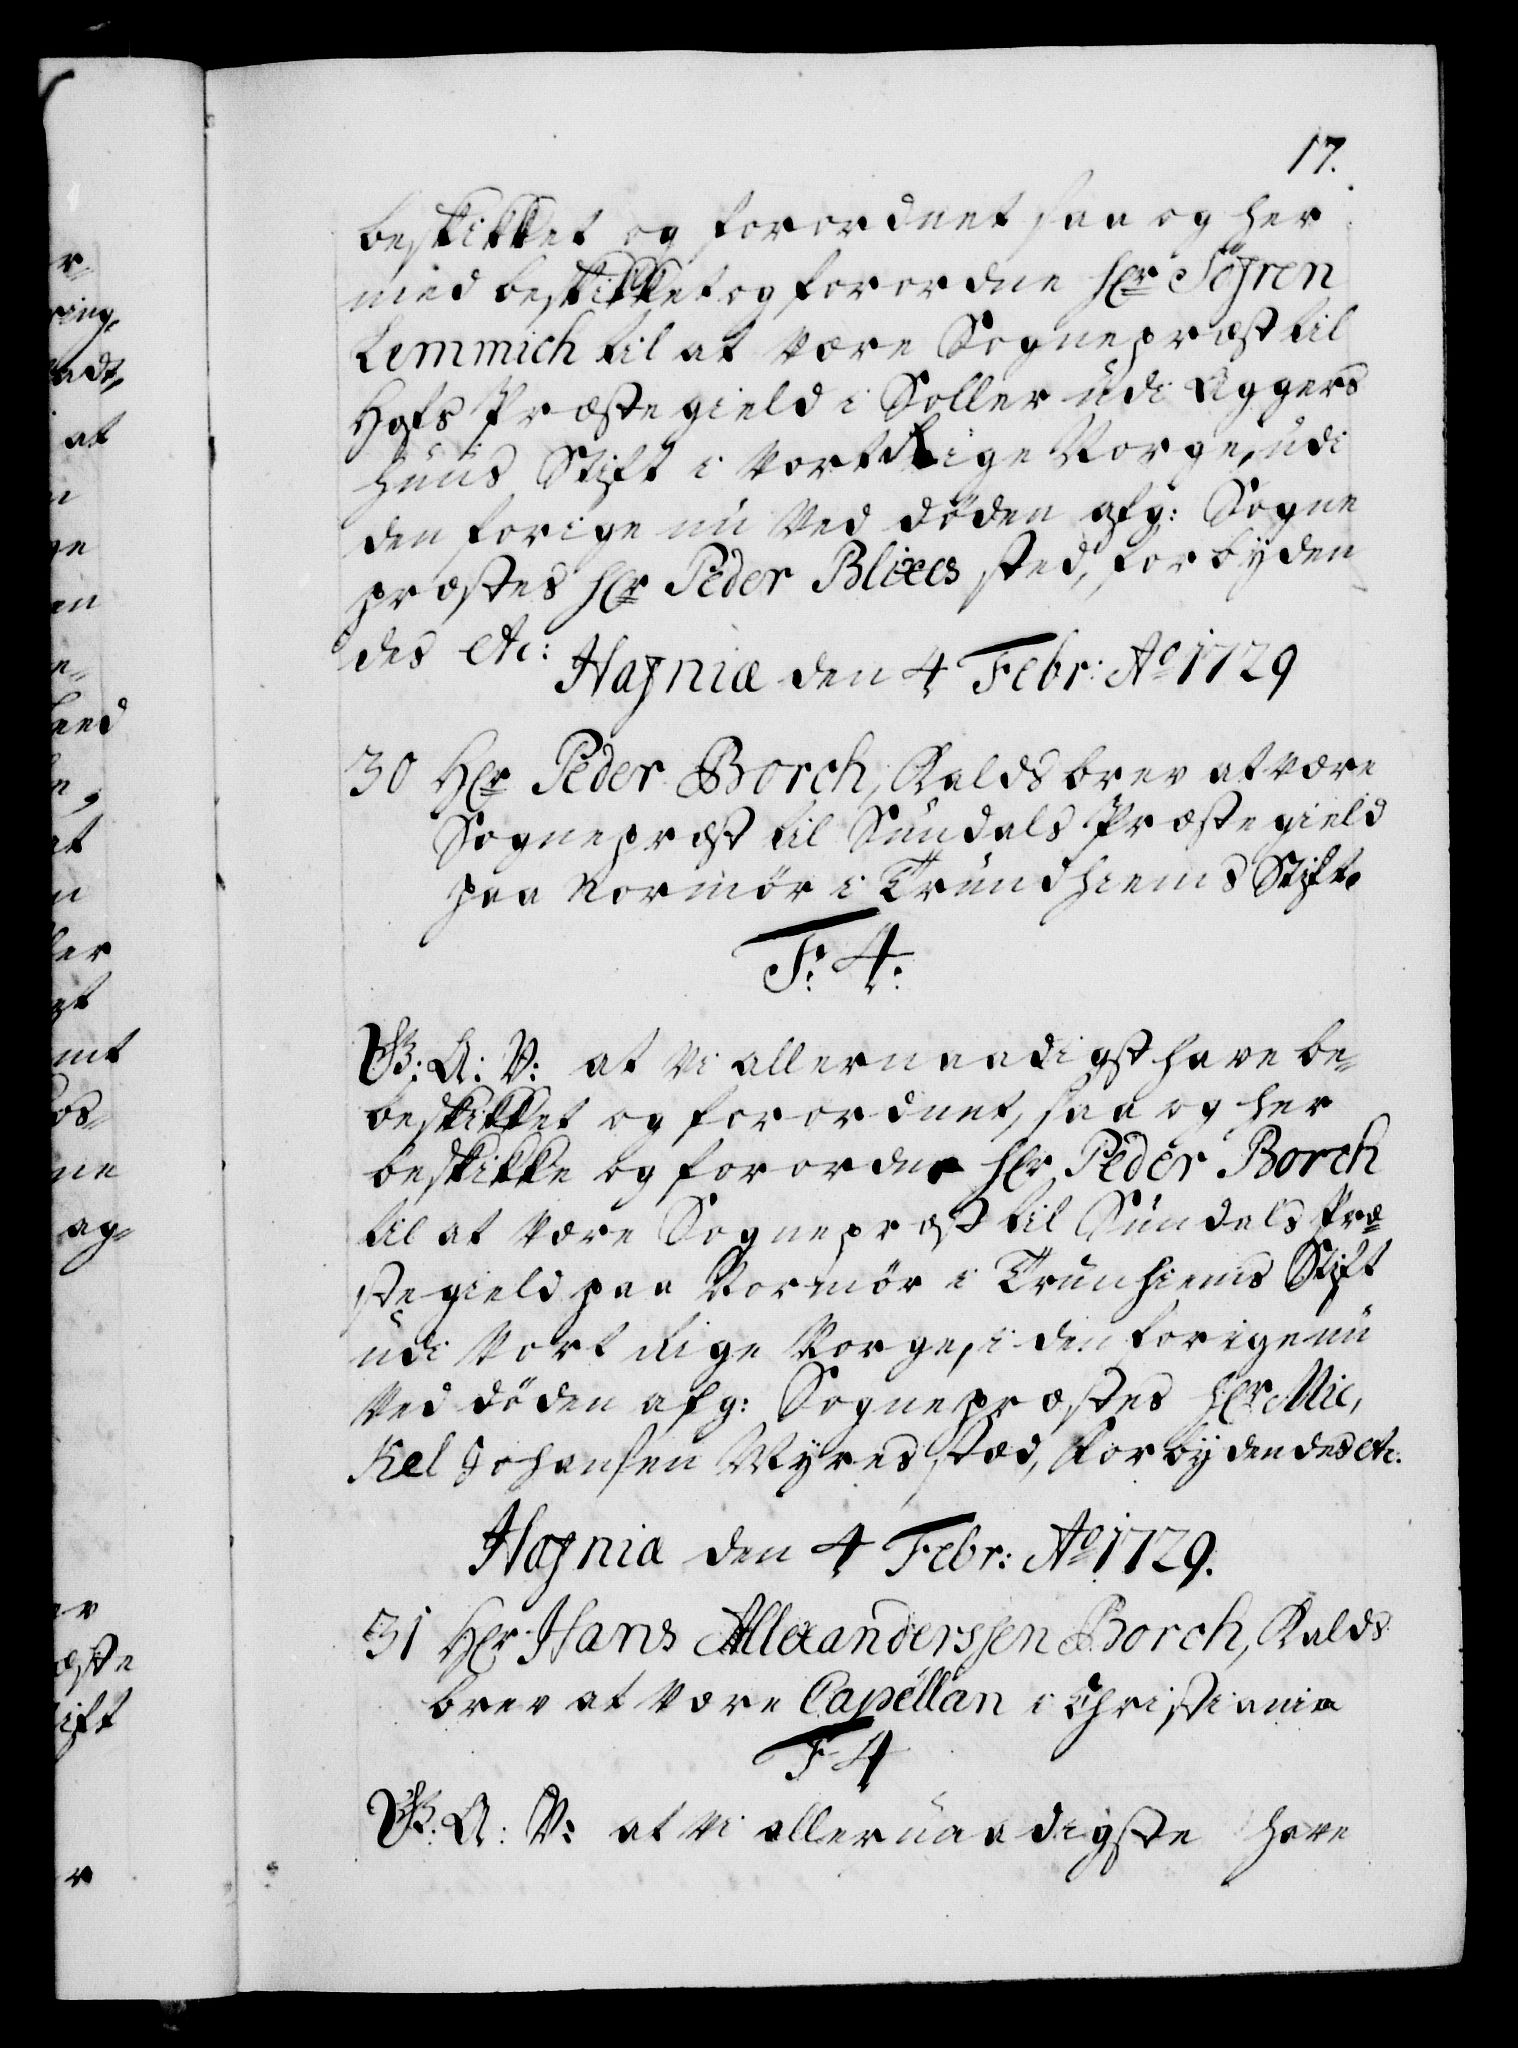 17.
beskikket og forordnet saa og her
med beskikket og forordne Hr Søfren
Lemmich til at være Sognepræst til
Hofs Præstegield i Soller udi Aggers
huus Stift i vort Rige Norge, udi
den forige nu ved døden afg: Sogne
præstes Hr Peder Blixes sted, forbyden
des etc:
Hafniæ den 4 Febr: Ao 1729
30 Hr Peder Borch, Kaldsbrev at være
Sognepræst til Sundals Præstegield
paa Normør i Trundhiems Stift.
F: 4:
G: A: V: at Vi allernaadigst have be-
beskikket og forordnet, saa og her
beskikke og forordne Hr Peder Borch
til at være Sognepræst til Sundals Præ-
stegield paa Normør i Trunhiems Stift
udi vort Rige Norge, i den forige nu
ved døden afg: Sognepræstes Hr Mic,
kel Johansen Myres stæd, forbydendes etc.
Hafnia den 4 Febr: Ao 1729.
31 Hr Hans Allexanderssen Borch, Kalds
brev at være Capellan i Christiania
F 4
G: A: V: at vi allernaadigste have
ring,
adt,
at
ge
en
e-
at
ler
et
mt
os-
ne
ag-
er
æste
ift
r